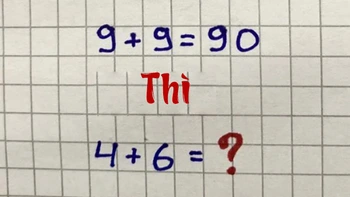 9 + 9 = 90
Thì
4 + 6 = ?